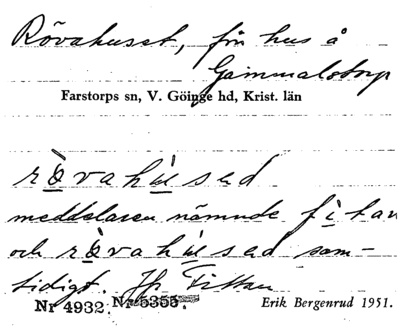 Rövahuset, fm hus å
Gammalstorp
Farstorps sn, V. Göinge hd, Krist. län
rövahused
meddelaren nämnde fitan
och rövahused sam-
tidigt. Jfr Fittan
Nr 4932. Nr 5355.
Erik Bergenrud 1951.